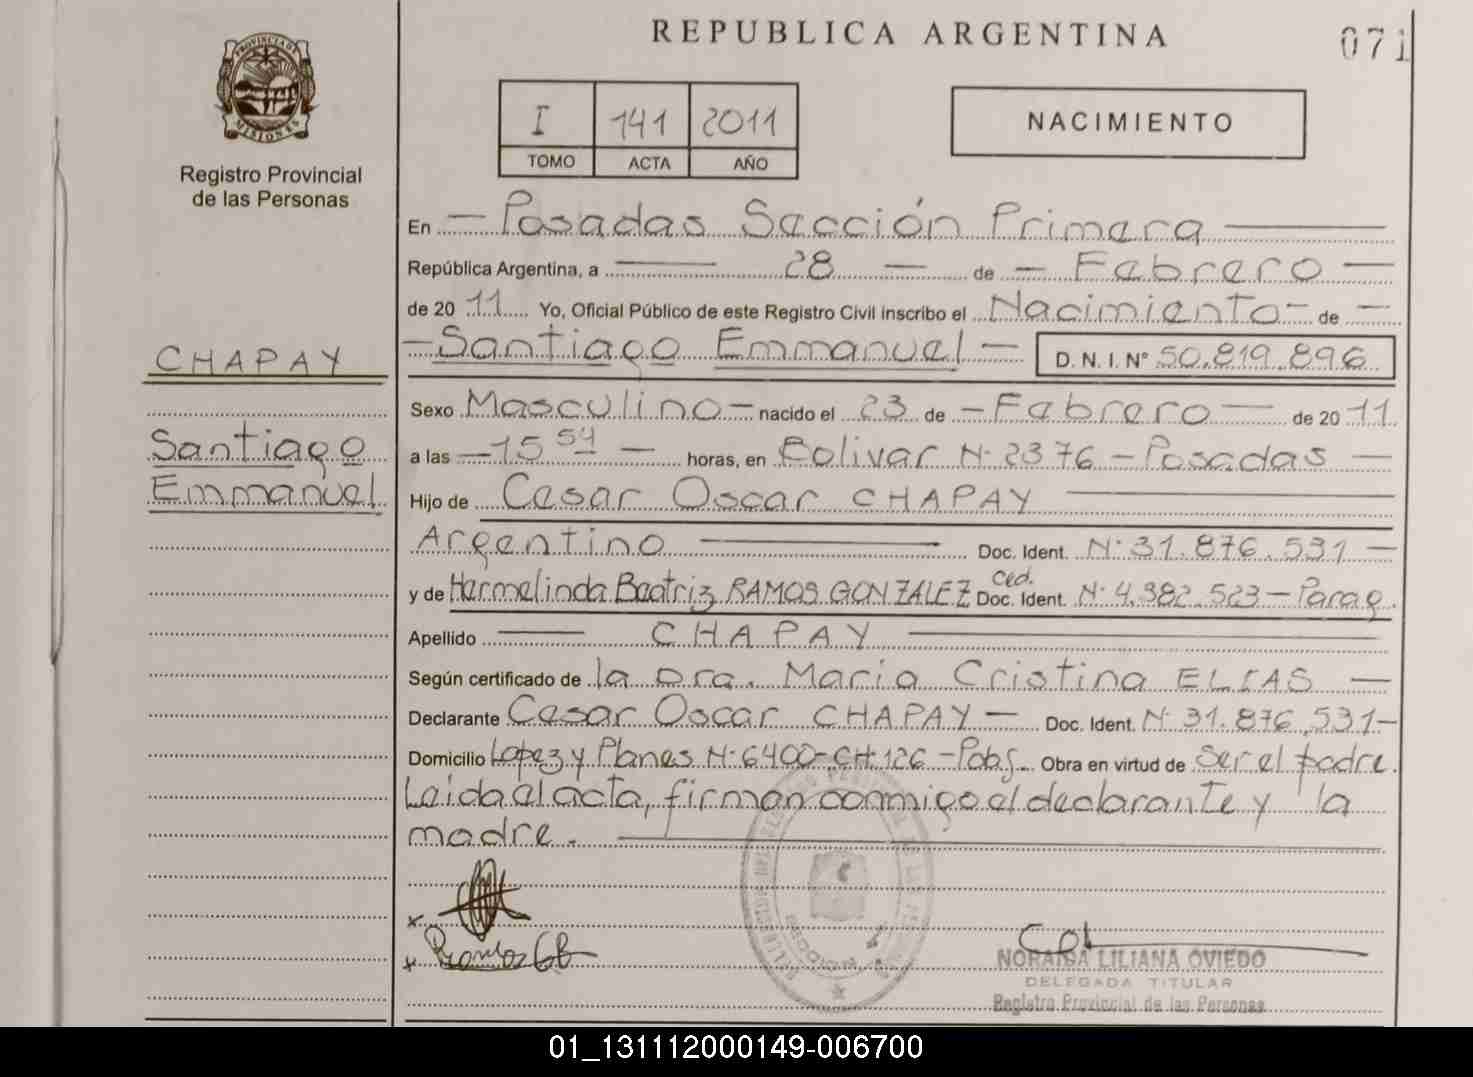 REPUBLICA ARGENTINA
071
PROVINCIA DE MISIONES
Registro Provincial
de las Personas
I 141 2011
TOMO ACTA AÑO
NACIMIENTO
En — Posadas Sección Primera —
República Argentina, a — 28 — de — Febrero —
de 2011 Yo, Oficial Público de este Registro Civil inscribo el Nacimiento — de —
— Santiago Emmanuel — D. N. I. Nº 50.819.896
CHAPAY
Santiago
Emmanuel
Sexo Masculino — nacido el 23 de — Febrero — de 2011
a las — 15 54 — horas, en Bolivar N· 2376 — Posadas —
Hijo de Cesar Oscar CHAPAY —
Argentino — Doc. Ident. N· 31.876.531 —
y de Hermelinda Beatriz RAMOS GONZALEZ Ced. Doc. Ident. N· 4.382.523 — Parag.
Apellido — CHAPAY —
Según certificado de la Dra. Maria Cristina ELIAS —
Declarante Cesar Oscar CHAPAY — Doc. Ident. N· 31.876.531 —
Domicilio Lopez y Planes N· 6400 - CH. 126 - Pdas. Obra en virtud de Ser el padre.
Leida el acta, firman conmigo el declarante y la
madre. —
x
x Ramos GB
NORAISA LILIANA OVIEDO
DELEGADA TITULAR
Registro Provincial de las Personas
01_131112000149-006700